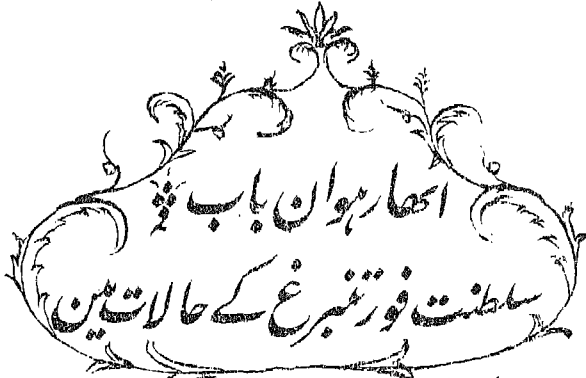 اٹھارہوان باب
سلطنت فورتمبرغ کے حالات مین